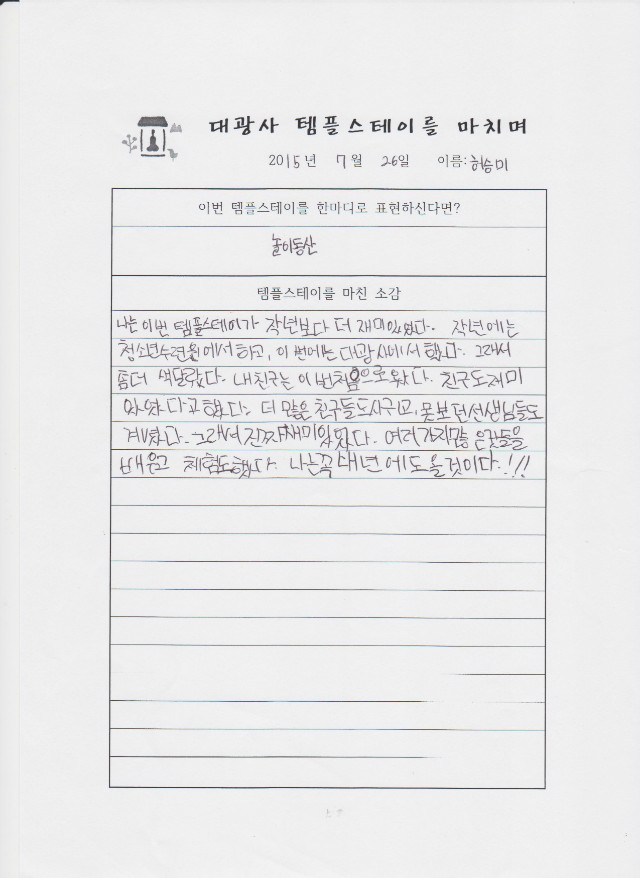 대광사 템플스테이를 마치며
2015년 7월 26일 이름:허승미
이번 템플스테이를 한마디로 표현하신다면?
놀이동산
템플스테이를 마친 소감
나는 이번 템플스테이가 작년보다 더 재미있었다. 작년에는
청소년수련원에서 하고, 이번에는 대광사에서 했다. 그래서
좀더 색달랐다. 내친구는 이번처음으로 왔다. 친구도 재미
있었다고 했다. 더 많은 친구들도 사귀고, 못보던 선생님들도
계셨다. 그래서 진짜 재미있었다. 여러가지 많은것들을
배우고 체험도했다. 나는 꼭 내년에도 올것이다.!!!